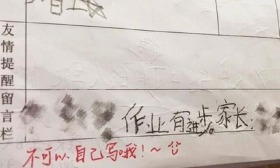 友情提醒留言栏
作业有进步 家长：
不可以自己写哦！~